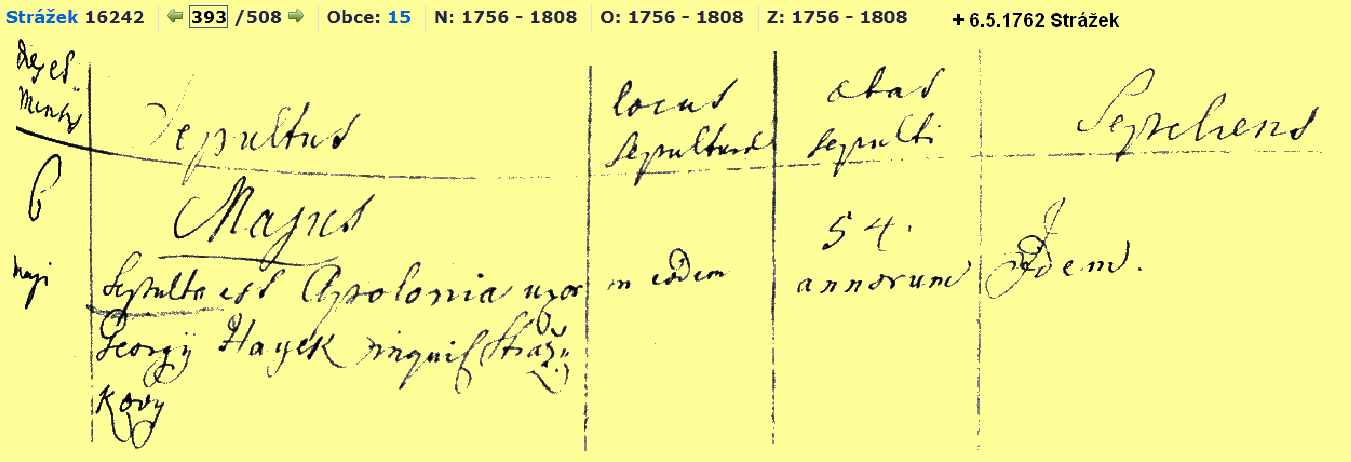 Strážek 16242 393 /508 Obce: 15 N: 1756 - 1808 O: 1756 - 1808 Z: 1756 - 1808 + 6.5.1762 Strážek
Dies et
Mensis
Sepultus
locus
Sepulturae
Etas
Sepulti
Sepeliens
6
Maji
Majus
Sepulta est Apolonia uxor
Georgÿ Hayek inquil Stráž:
kovy
in eodem
54.
annorum
Idem.